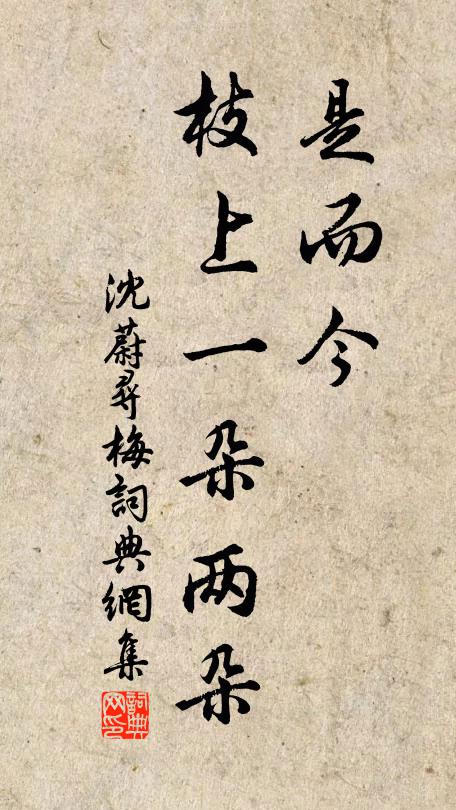 是而今
枝上一朵两朵
沈蔚尋梅詞典網集
詞典
网印